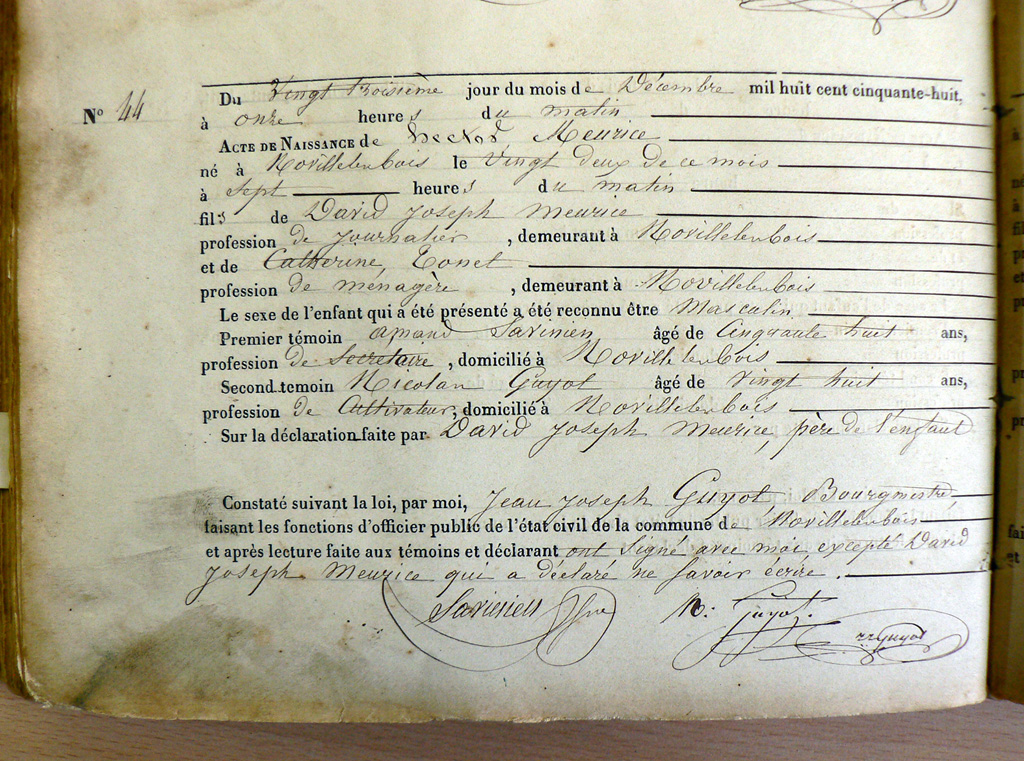 N° 44
Du Vingt troisième jour du mois de Décembre mil huit cent cinquante-huit,
à onze heures du matin
ACTE DE NAISSANCE de Hector Meurice
né à Novillelenbois le vingt deux de ce mois
à Sept heures du matin
fils de David Joseph Meurice
profession de journalier, demeurant à Novillelenbois
et de Catherine, Tonet
profession de ménagère, demeurant à Novillelenbois
Le sexe de l'enfant qui a été présenté a été reconnu être Masculin
Premier témoin amand Savinien âgé de Cinquante huit ans,
profession de Secretaire, domicilié à Noville lenbois
Second temoin Nicolas Guyot âgé de vingt huit ans,
profession de Cultivateur, domicilié à Novillelenbois
Sur la déclaration faite par David Joseph Meurice, père de l'enfant
Constaté suivant la loi, par moi, Jean Joseph Guyot, Bourgmestre,
faisant les fonctions d'officier public de l'état civil de la commune de Novillelenbois
et après lecture faite aux témoins et déclarant ont Signé avec moi excepté David
Joseph Meurice qui a déclaré ne Savoir écrire.
Savinien N: Guyot. Guyot